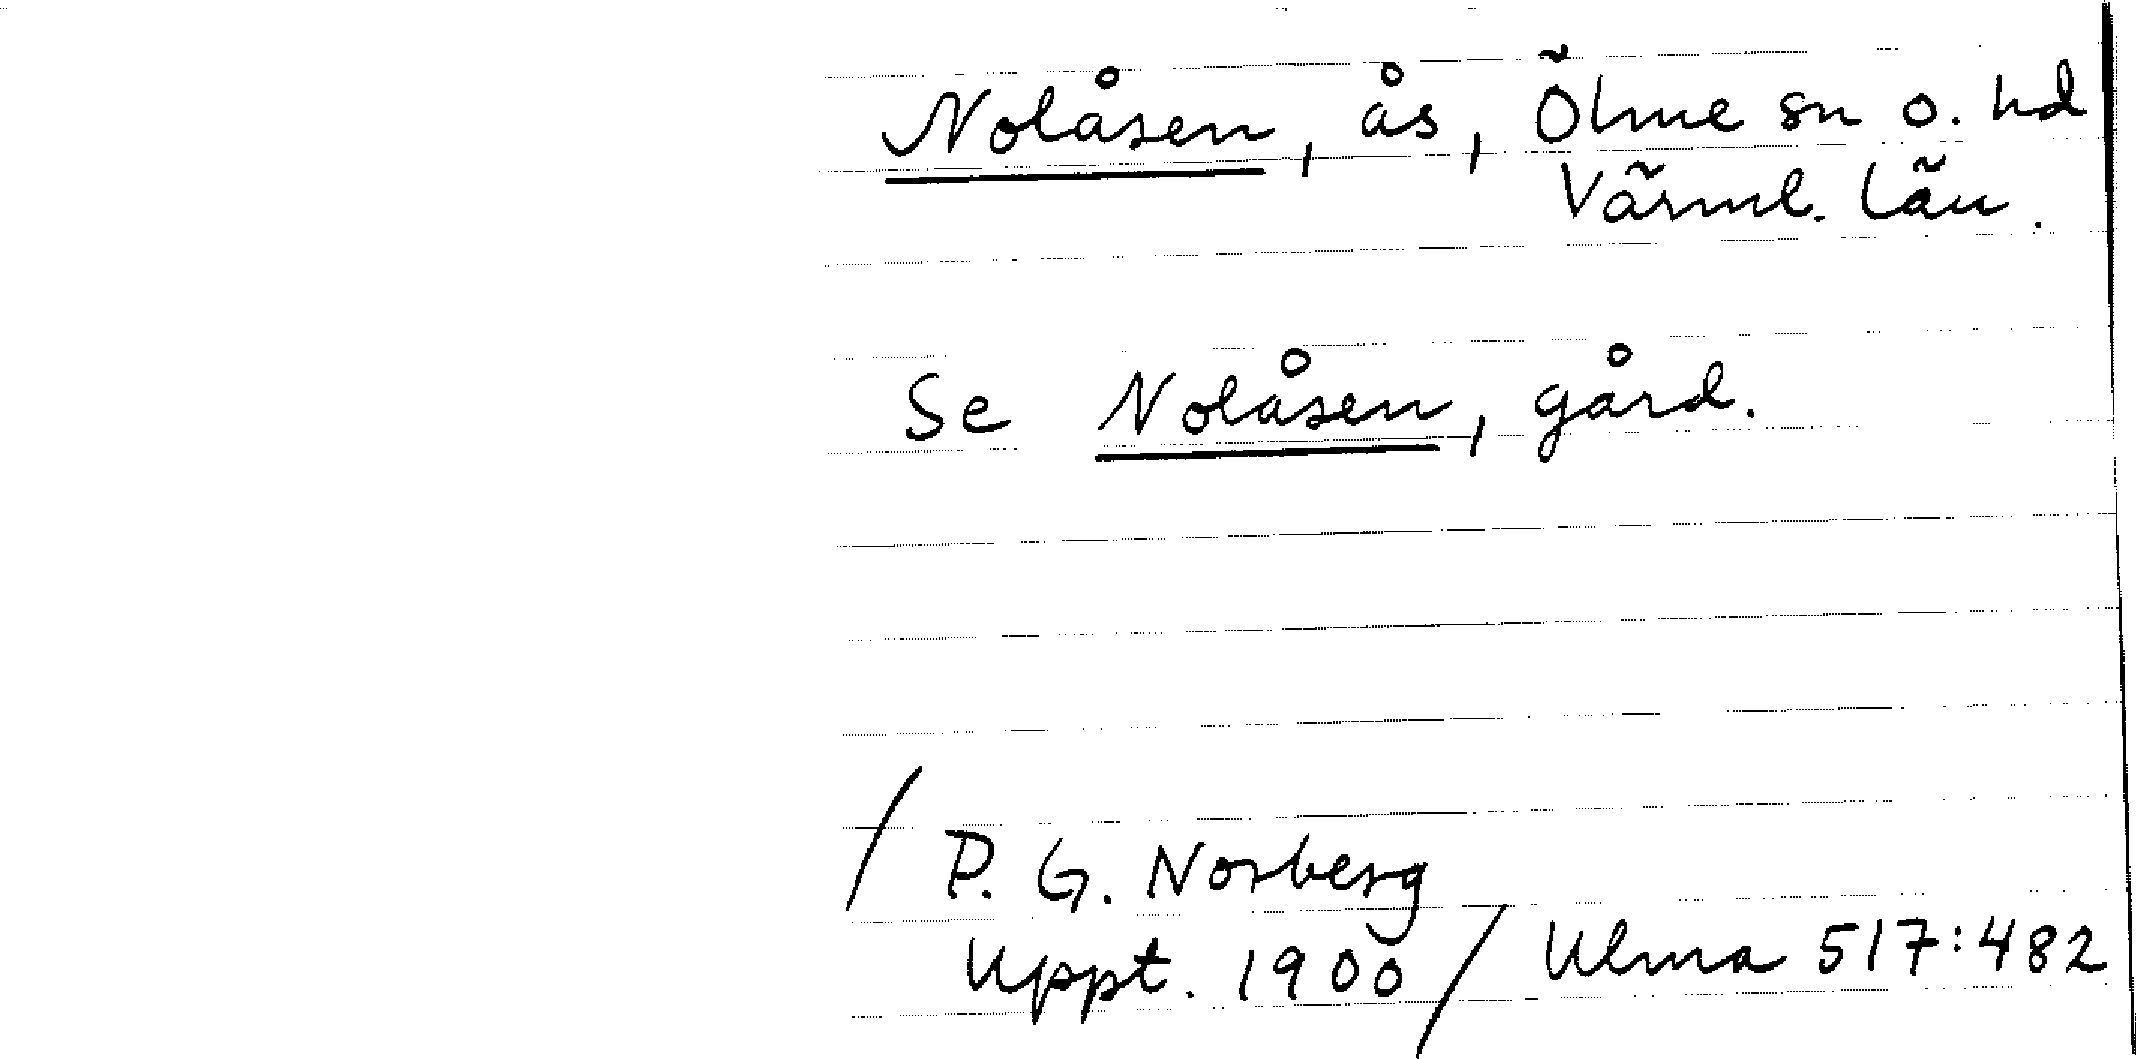 Nolåsen, ås, Ölme sn o. hd
Värml. län.
Se Nolåsen, gård.
/ P. G. Norberg
Uppt. 1900 / Ulma 517:482